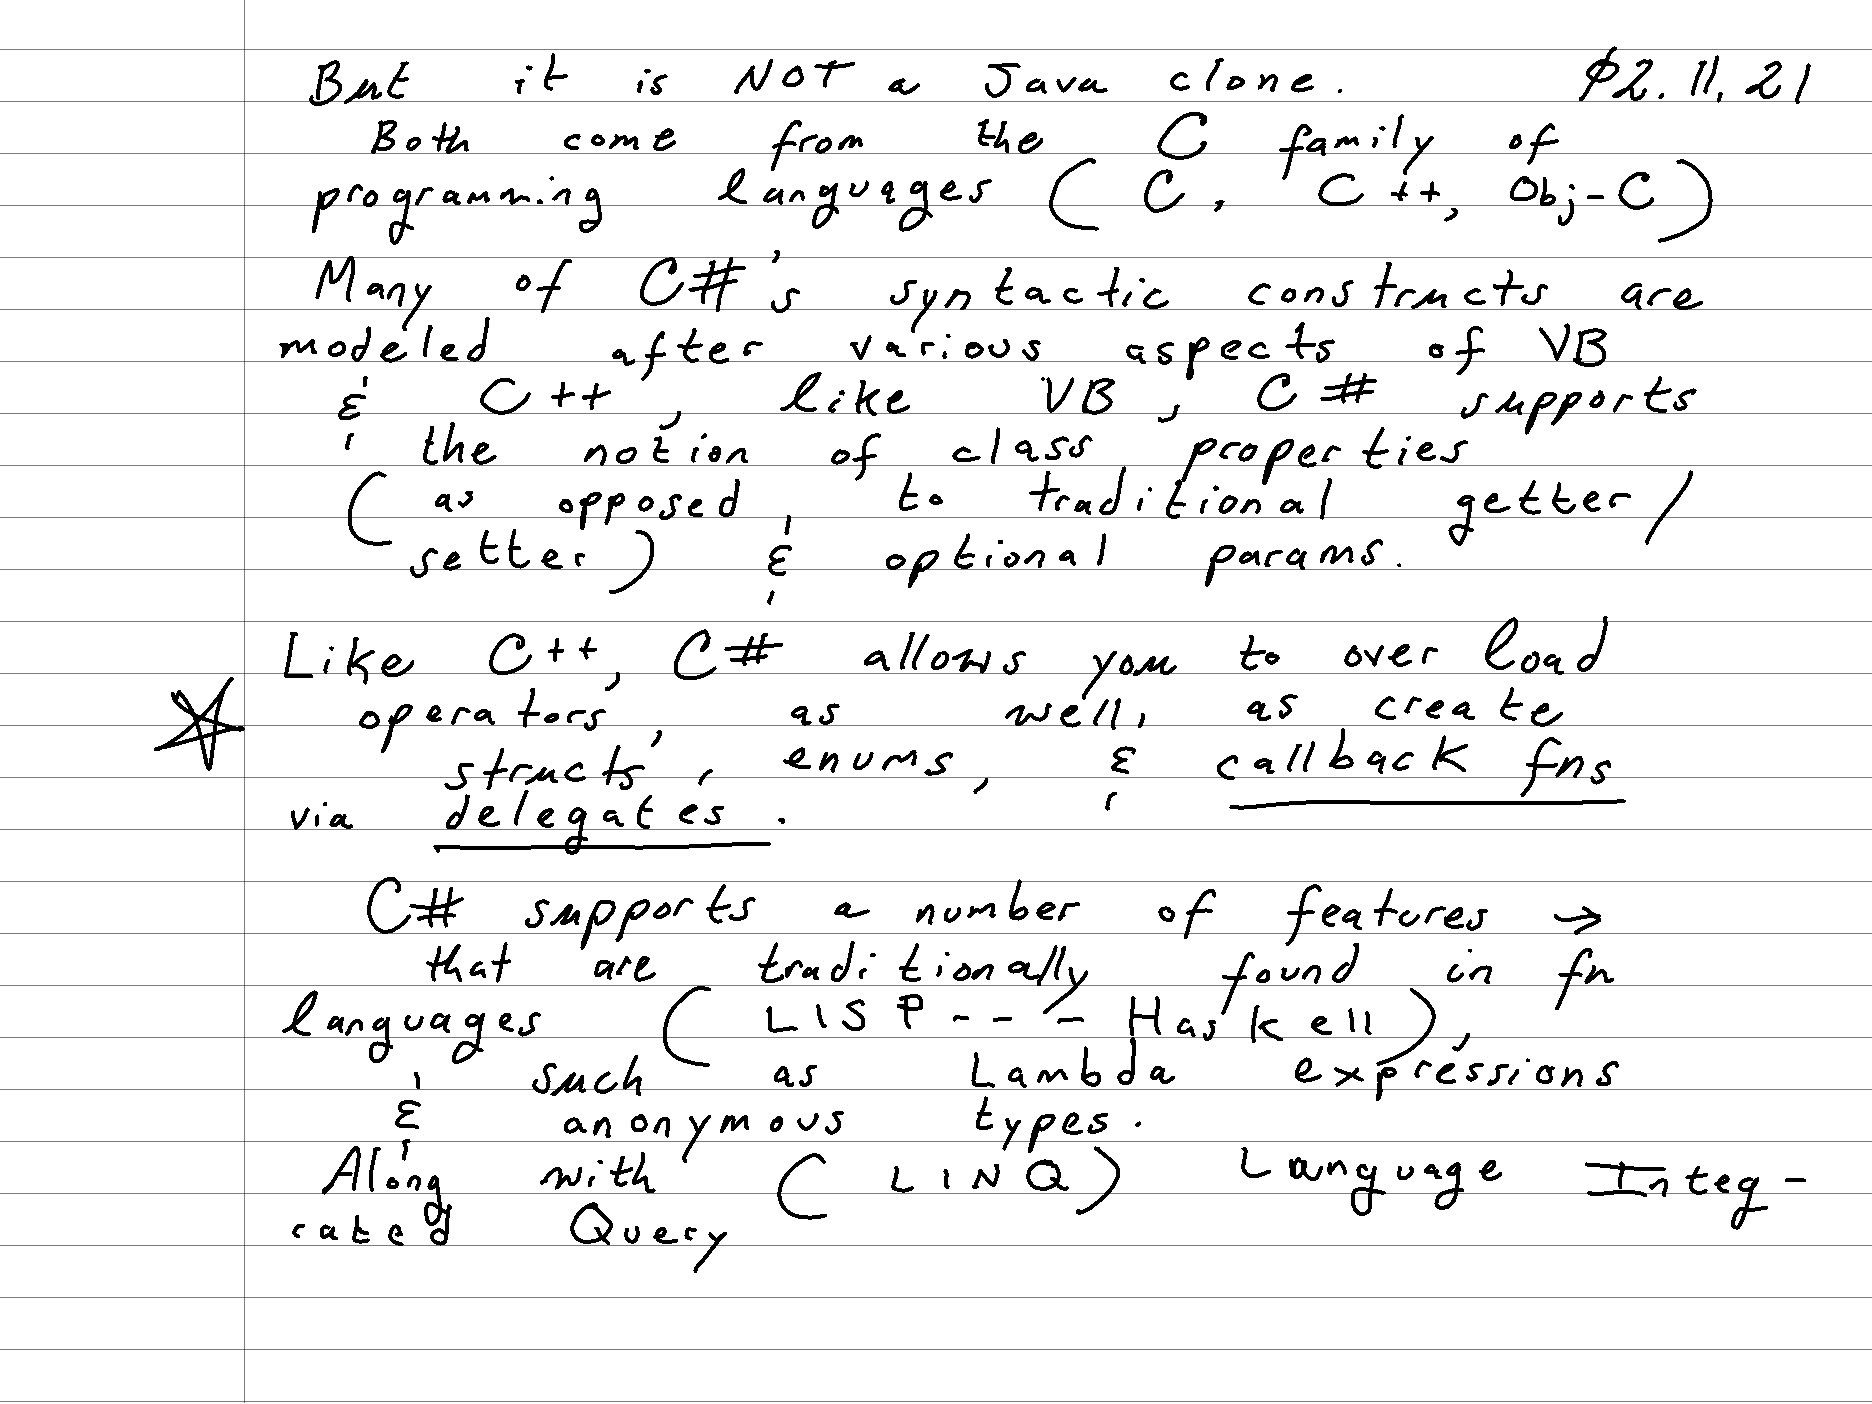 But it is NOT a Java clone. 02.11.21
Both come from the C family of
programming languages ( C, C++, Obj-C )
Many of C#'s syntactic constructs are
modeled after various aspects of VB
& C++, like VB, C# supports
the notion of class properties
( as opposed to traditional getter /
setter ) & optional params.
Like C++, C# allows you to over load
operators, as well, as create
structs, enums, & callback fns
via delegates.
C# supports a number of features →
that are traditionally found in fn
languages ( LISP --- Haskell ),
such as Lambda expressions
& anonymous types.
Along with ( LINQ ) Language Integ-
rated Query